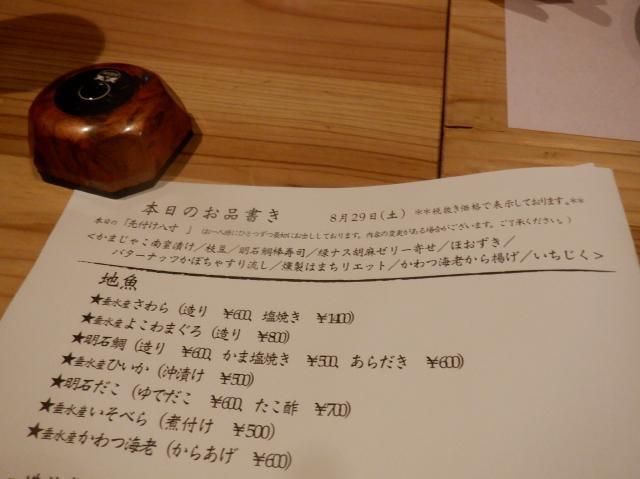 本日のお品書き 8月29日(土) **税抜き価格で表示しております。**
本日の「先付け八寸 」(お一人様にひとつずつ最初にお出ししております。内容の変更がある場合がございます。ご了承ください。)
<かまじゃこ南蛮漬け/枝豆/明石鯛棒寿司/緑ナス胡麻ゼリー寄せ/ほおずき/
バターナッツかぼちゃすり流し/燻製はまちリエット/かわつ海老から揚げ/いちじく>
地魚
★垂水産さわら(造り ¥600、塩焼き ¥1400)
★垂水産よこわまぐろ(造り ¥800)
★明石鯛(造り ¥600、かま塩焼き ¥500、あらだき ¥600)
★垂水産ひいか(沖漬け ¥500)
★明石だこ(ゆでだこ ¥600、たこ酢 ¥700)
★垂水産いそべら(煮付け ¥500)
★垂水産かわつ海老(からあげ ¥600)